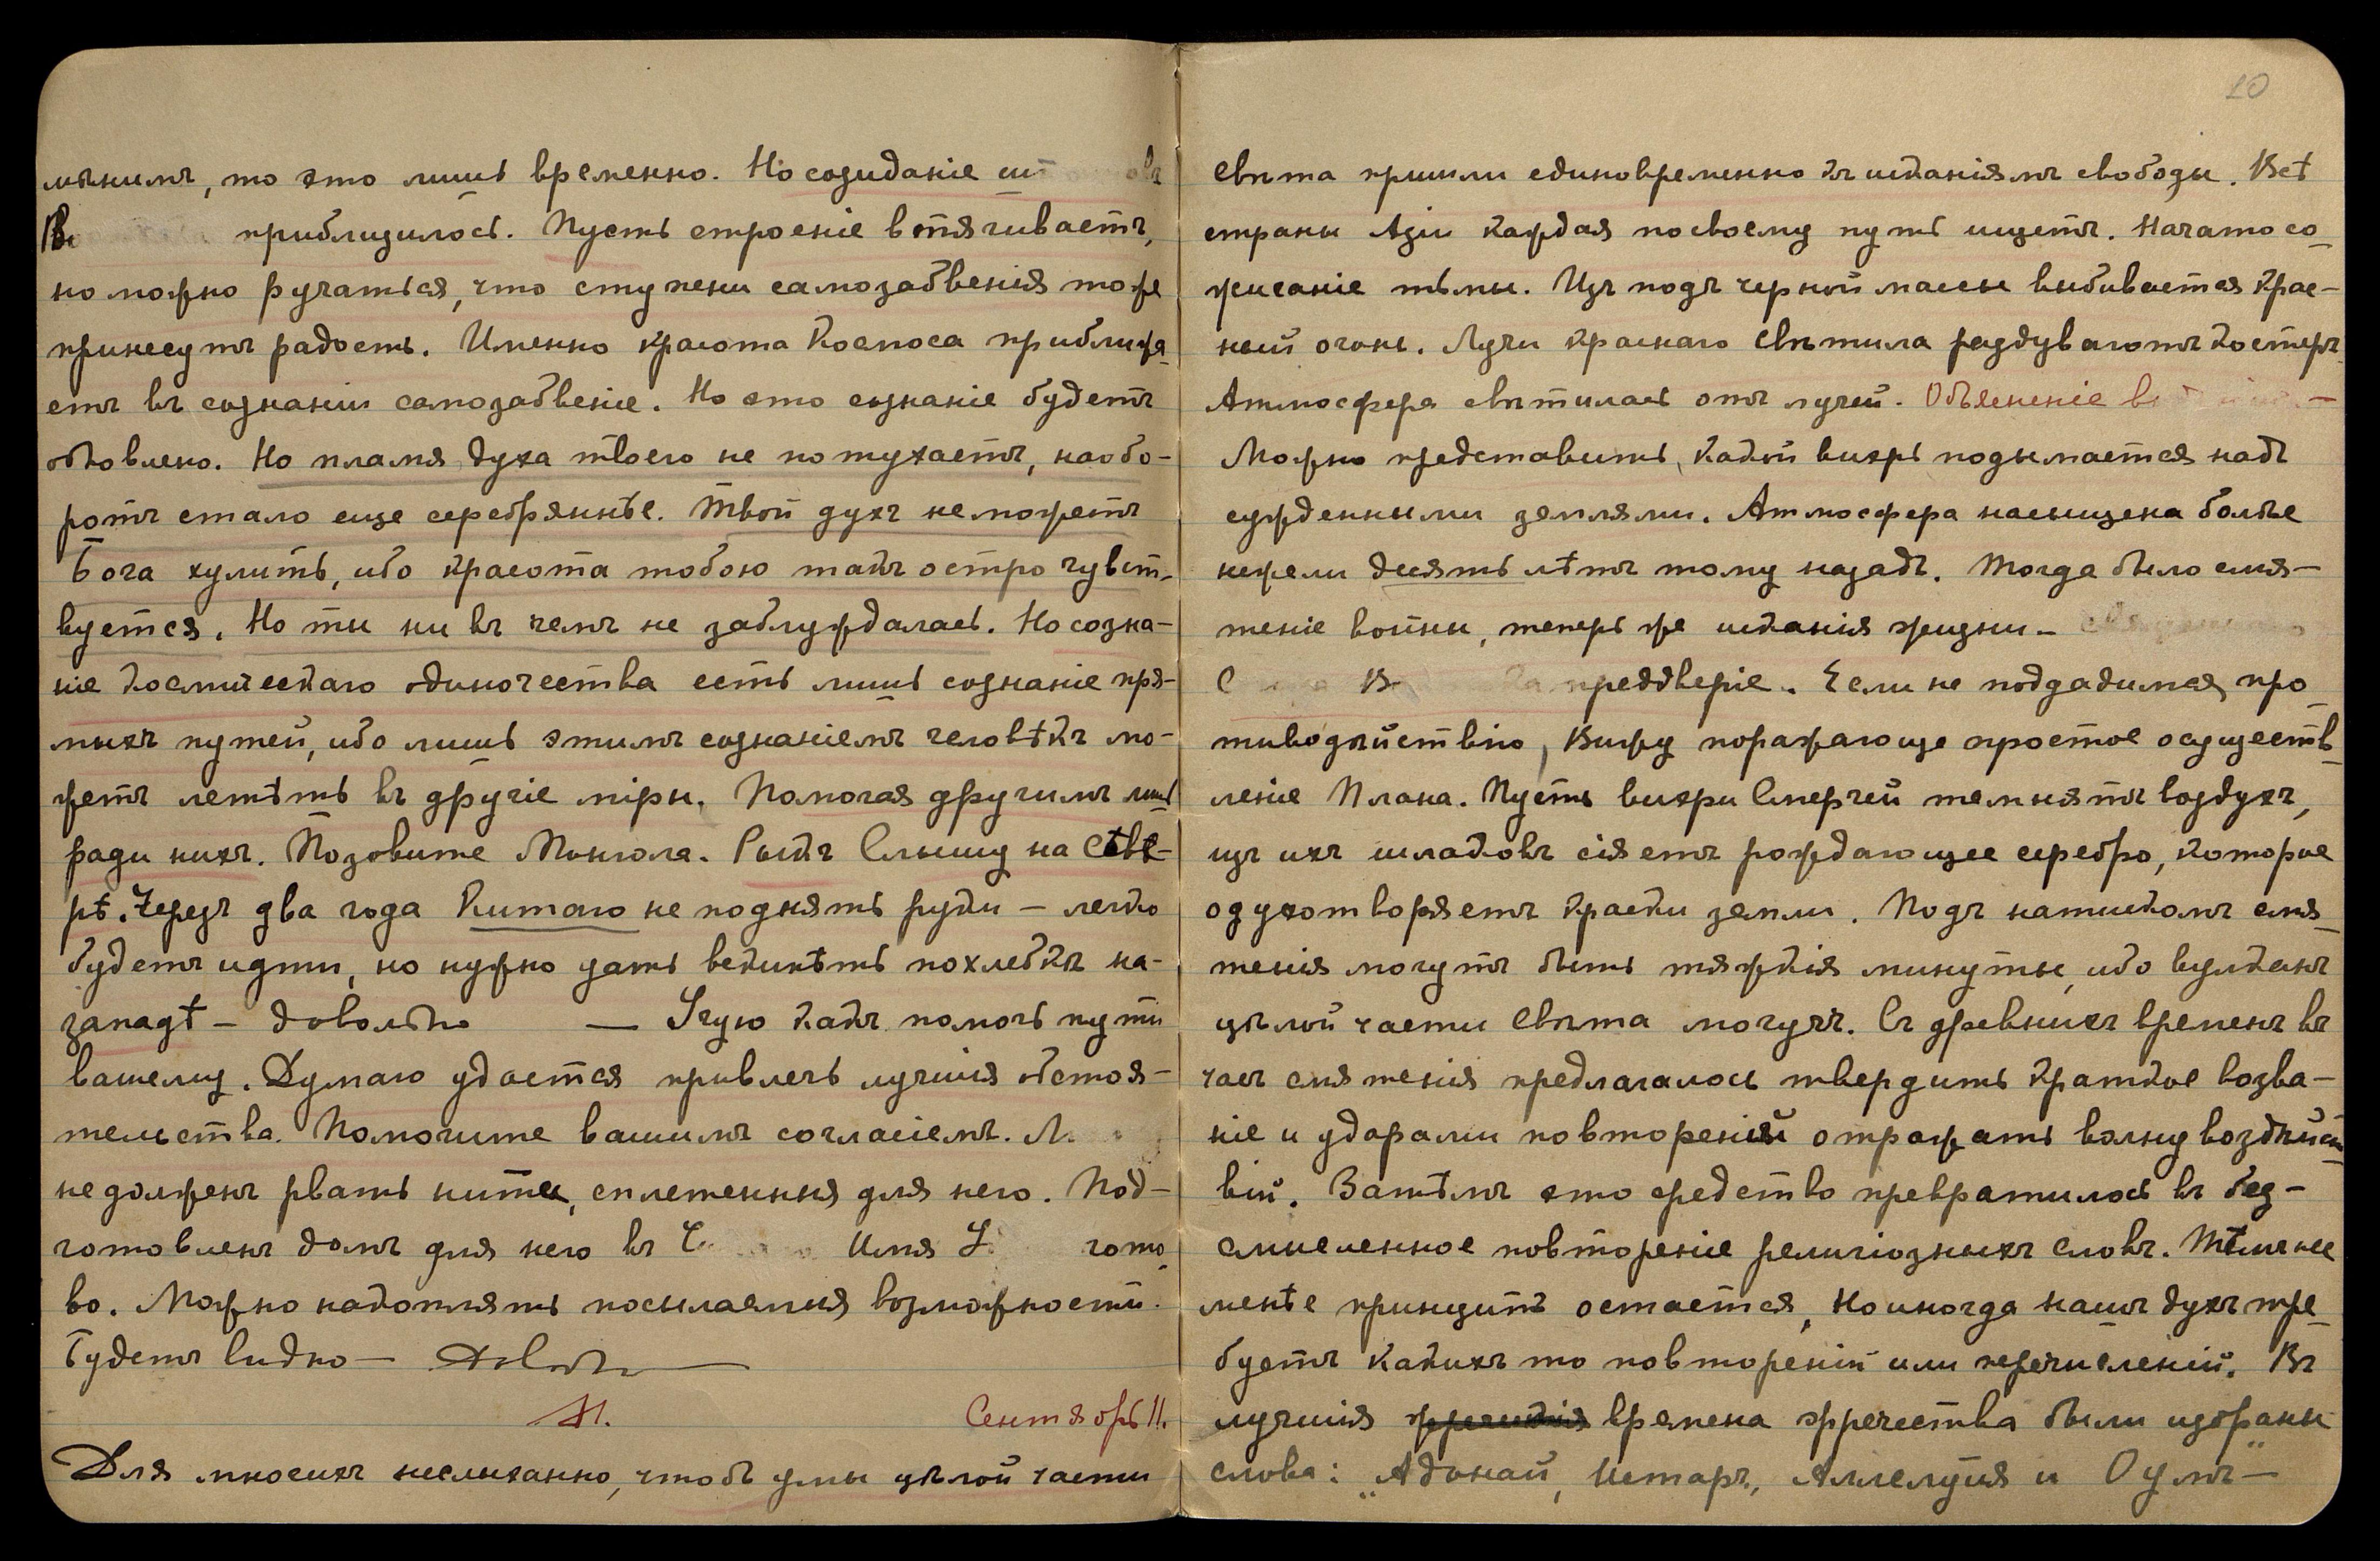 мѣнимъ, то это лишь временно. Но созиданіе
приблизилось. Пусть строеніе втягиваетъ,
но можно ручаться, что ступени самозабвенія тоже
принесутъ радость. Именно красота Космоса приближа-
етъ въ сознаніи самозабвеніе. Но это сознаніе будетъ
обновлено. Но пламя духа твоего не потухаетъ, наобо-
ротъ стало еще серебряннѣе. Твой духъ не можетъ
Бога хулить, ибо красота тобою такъ остро чувст-
вуется. Но ты ни въ чемъ не заблуждалась. Но созна-
ніе космическаго одиночества есть лишь сознаніе пря-
мыхъ путей, ибо лишь этимъ сознаніемъ человѣкъ мо-
жетъ летѣть въ другіе міры. Помогая другимъ лишь
ради нихъ. Позовите Монгола. Рыкъ Слышу на Сѣве-
рѣ. Черезъ два года Китаю не поднять руки — легко
будетъ идти, но нужно дать вскипѣть похлебкѣ на
западѣ — довольно — Чую какъ помочь пути
вашему. Думаю удастся привлечь лучшія обстоя-
тельства. Помогите вашимъ согласіемъ. М
не долженъ рвать нити, сплетенныя для него. Под-
готовленъ домъ для него въ Имя гото-
во. Можно накоплять посылаемыя возможности.
Будетъ видно — Довольно
11. Сентябрь 11.
Для многихъ неслыханно, чтобъ умы цѣлой части
10
Свѣта пришли единовременно къ исканіямъ свободы. Всѣ
страны Азіи каждая посвоему путь ищетъ. Начато со-
жиганіе тьмы. Изъ подъ черной массы выбивается крас-
ный огонь. Лучи краснаго Свѣтила раздуваютъ костеръ
Атмосфера свѣтилась отъ лучей. Объясненіе
Можно представить, какой вихрь подымается надъ
сужденными землями. Атмосфера насыщена болѣе
нежели десять лѣтъ тому назадъ. Тогда было смя-
теніе войны, теперь же исканія жизни —
преддверіе. Если не поддадимся про-
тиводѣйствію, Вижу поражающе простое осуществ-
леніе Плана. Пусть вихри Смерчей темнятъ воздухъ,
изъ ихъ шлаковъ сіяетъ рождающее серебро, которое
одухотворяетъ краски земли. Подъ натискомъ смя-
тенія могутъ быть тяжкія минуты, ибо вулканъ
цѣлой части Свѣта могучъ. Съ древнихъ временъ въ
часъ смятенія предлагалось твердить краткое воззва-
ніе и ударами повтореній отражать волну воздѣйст-
вій. Затѣмъ это средство превратилось въ без-
смысленное повтореніе религіозныхъ словъ. Тѣмъ не
менѣе принципъ остается, но иногда нашъ духъ тре-
буетъ какихъ то повтореній или перечисленій. Въ
лучшія времена жречества были избраны
слова: „Адонай, Истаръ, Аллелуія и Оумъ" —